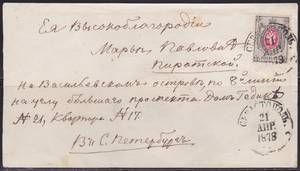 Ея Высокоблагородiю
Марьѣ Павловнѣ
Пиротской
на Васильевскомъ островѣ, по 8й линiи
на углу большаго проспекта Домъ
№ 21, Квартира № 17.
В С. Петербургъ
СЕВАСТОПОЛЬ
21
АПР.
1878